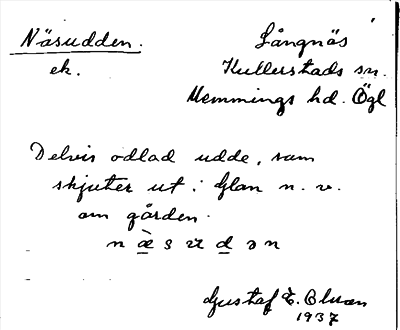 Näsudden.
ek.
Långnäs
Kullerstads sn.
Memmings hd. Ögl
Delvis odlad udde, som
skjuter ut i Glan n. v.
om gården.
Gustaf E.
1937